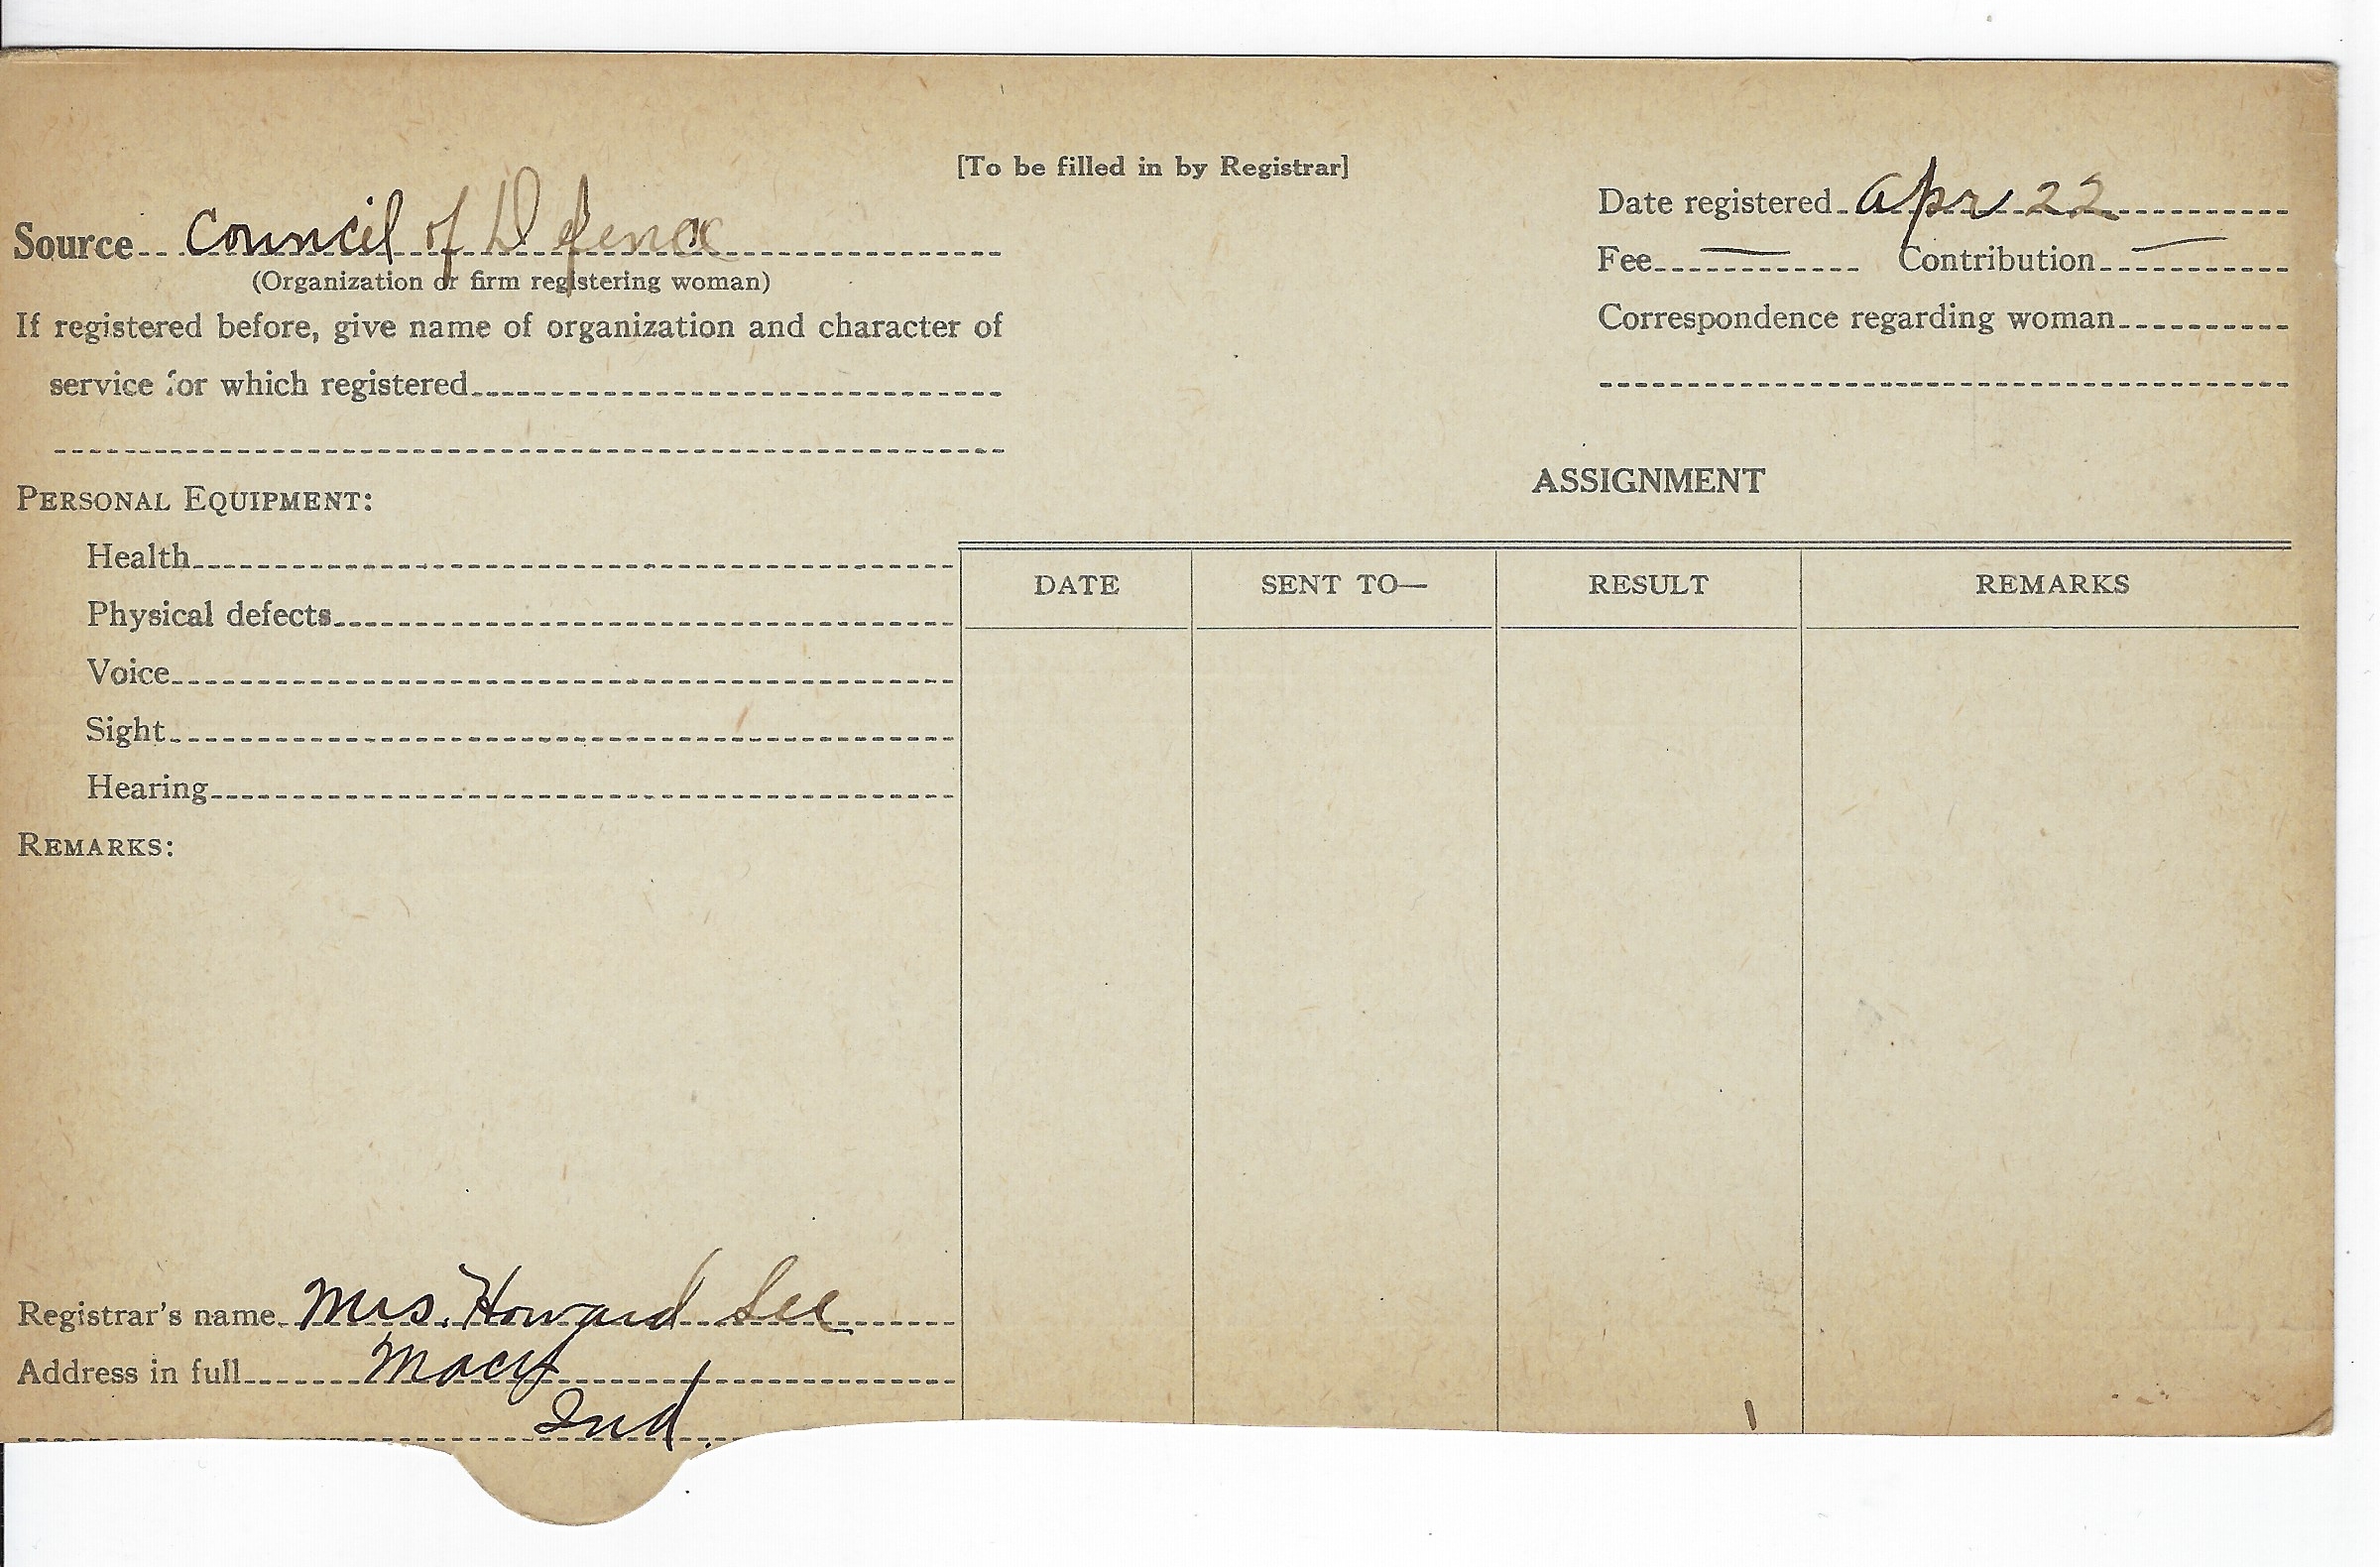 [To be filled in by Registrar]
Source Council of Defence
(Organization or firm registering woman)
If registered before, give name of organization and character of
service for which registered
Date registered Apr 22
Fee — Contribution —
Correspondence regarding woman
PERSONAL EQUIPMENT:
Health
Physical defects
Voice
Sight
Hearing
REMARKS:
ASSIGNMENT
DATE SENT TO— RESULT REMARKS
Registrar's name Mrs. Howard See
Address in full Macy
Ind.